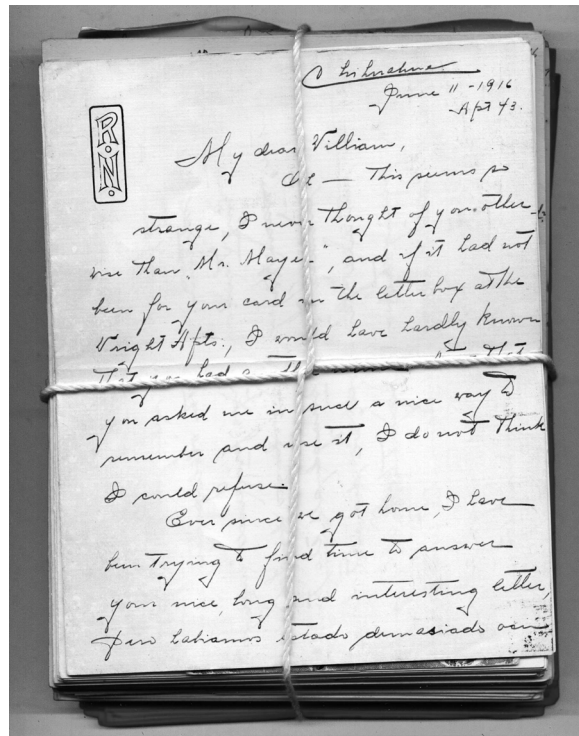 Chihuahua
June 11-1916
Apt 43.
R.N.
My dear William,
— This seems so
strange, I never thought of you other-
wise than "Mr. Maye-", and if it had not
been for your card in the letter box at the
Wright Apts., I would have hardly known
that you had a
you asked me in such a nice way to
remember and use it, I do not think
I could refuse.
Ever since we got home, I have
been trying to find time to answer
your nice, long and interesting letter,
pero habiamos estado demasiado ocu